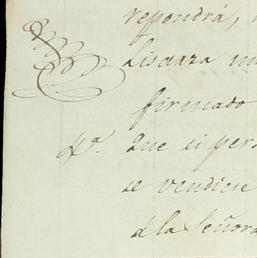 repondrá,
firmado
4ª. Que si per
se vendiese
á la Señora